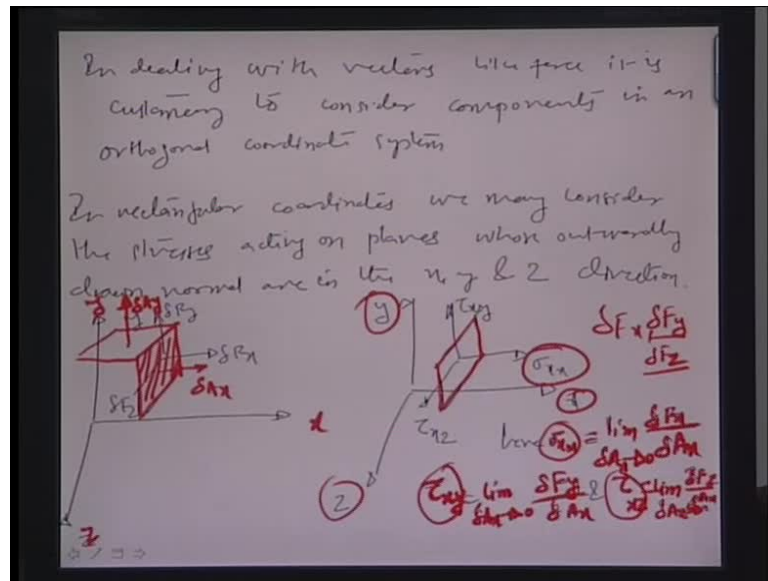 In dealing with vectors like force it is
customary to consider components in an
orthogonal coordinate system
In rectangular coordinates we may consider
the stresses acting on planes whose outwardly
drawn normal are in the x, y & z direction.
y δAy δFy
δFx
δAx
δFz
x
z
y τxy
σxx
τxz
z
δFx δFy
δFz
here σxx = lim δAx→0 δFx/δAx
τxy = lim δAx→0 δFy/δAx & τxz = lim δAx→0 δFz/δAx